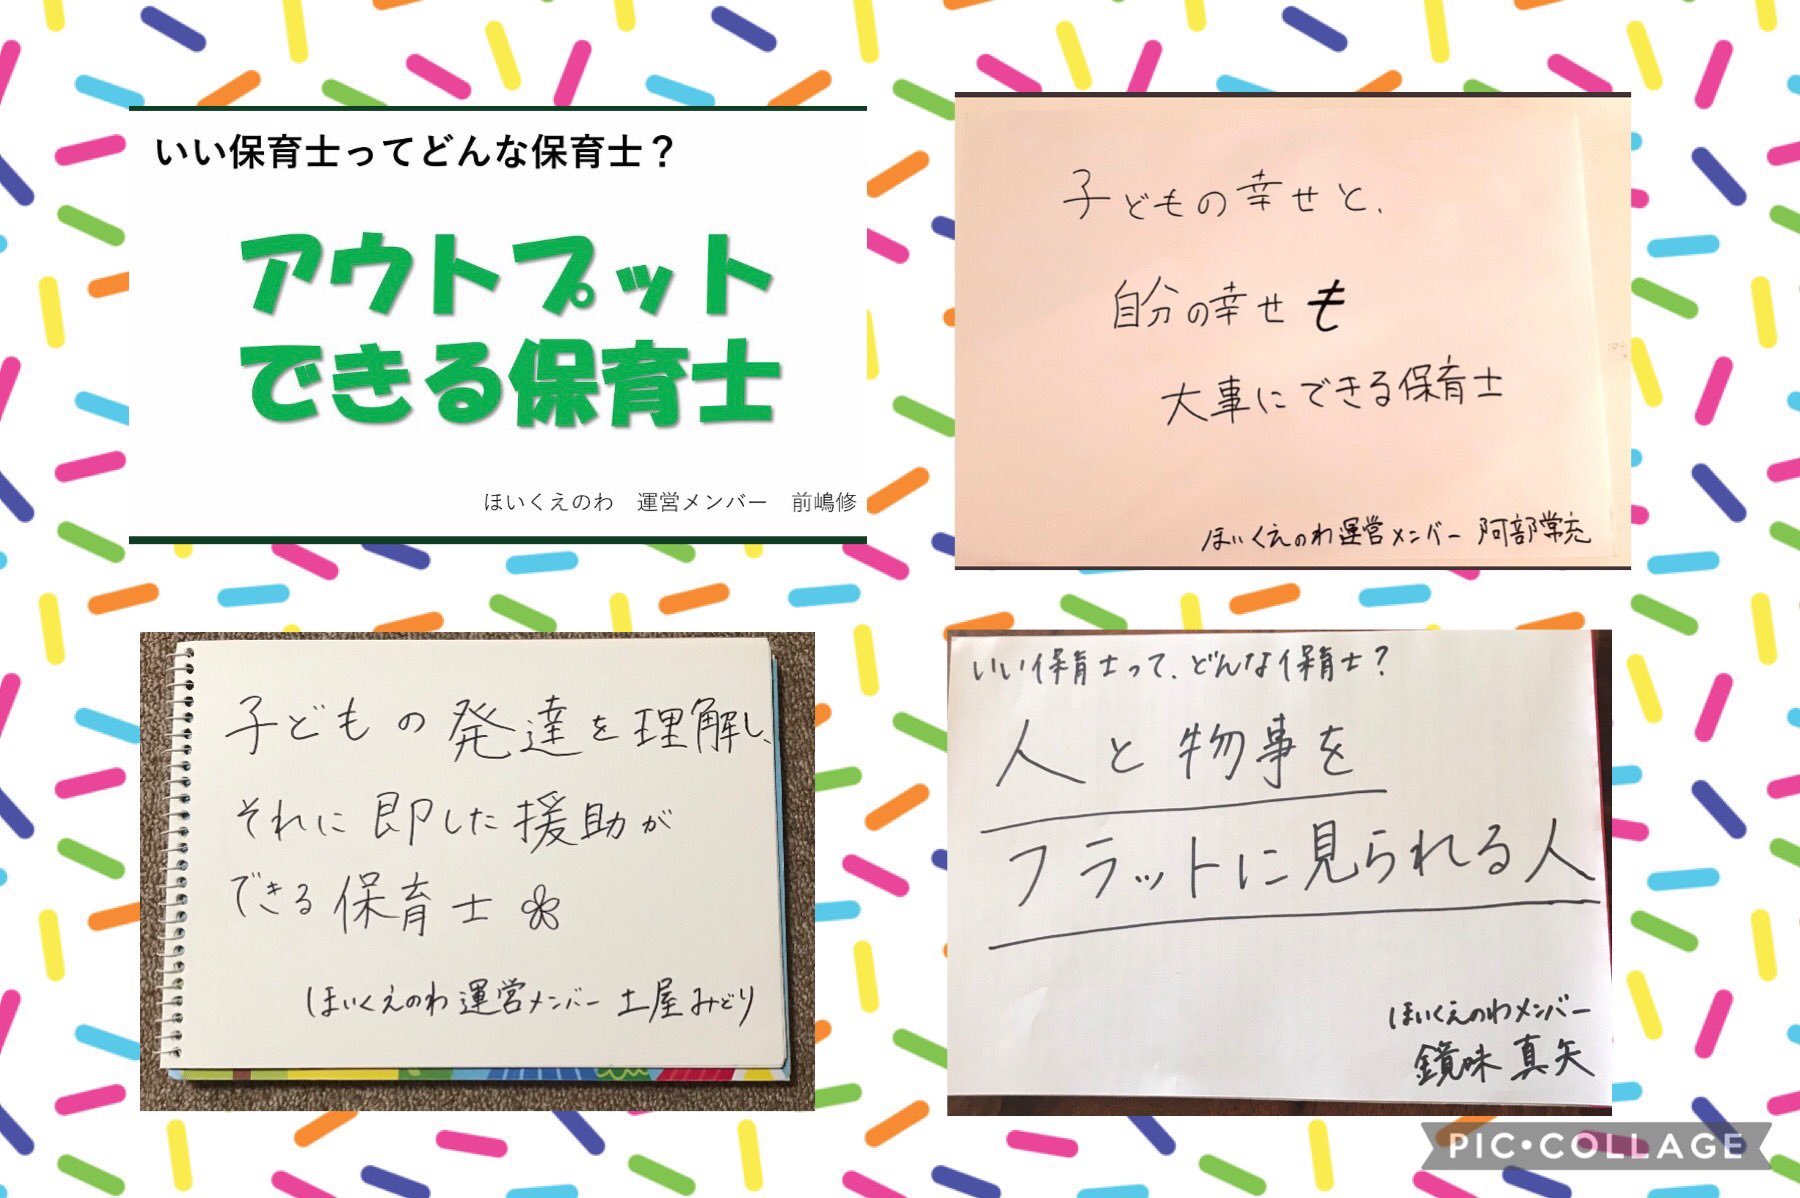 いい保育士ってどんな保育士？
アウトプット
できる保育士
ほいくえのわ　運営メンバー　前嶋修
子どもの幸せと、
自分の幸せも
大事にできる保育士
ほいくえのわ運営メンバー 阿部常充
子どもの発達を理解し、
それに即した援助が
できる保育士
ほいくえのわ 運営メンバー 土屋みどり
いい保育士って、どんな保育士？
人と物事を
フラットに見られる人
ほいくえのわメンバー
鏡味 真矢
PIC•COLLAGE